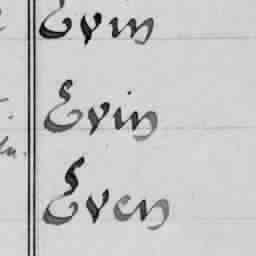 Evin
Evin
Even